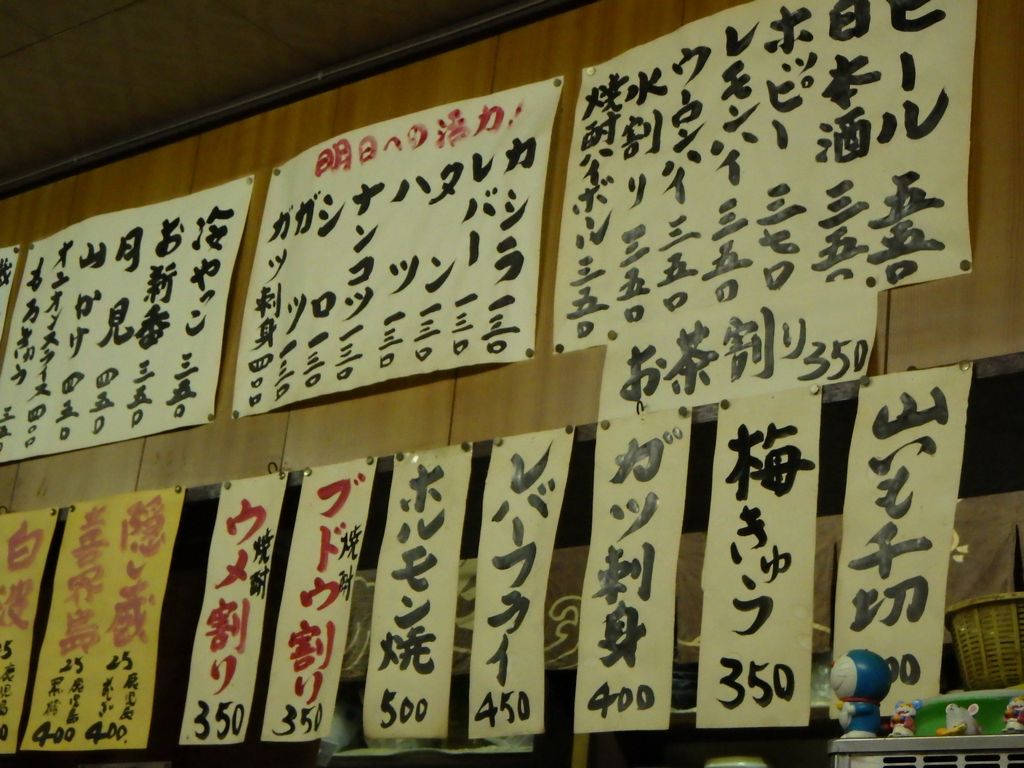 ビール 五五〇
日本酒 三五〇
ホッピー 三七〇
レモンハイ 三五〇
ウーロンハイ 三五〇
水割り 三五〇
焼酎ハイボール 三五〇
お茶割り 350
明日への活力!
カシラ 一三〇
レバー 一三〇
タン 一三〇
ハツ 一三〇
ナンコツ 一三〇
シロ 一三〇
ガツ 一三〇
ガツ刺身 四〇〇
冷やっこ 三五〇
お新香 三五〇
月見 四五〇
山かけ 四五〇
オニオンスライス 四〇〇
もろきゅう
山いも千切
梅きゅう 350
ガツ刺身 400
レバーフライ 450
ホルモン焼 500
ブドウ割り 焼酎 350
ウメ割り 焼酎 350
隠し蔵 25 鹿児島 400
喜界島 25 鹿児島 黒糖 400
白波